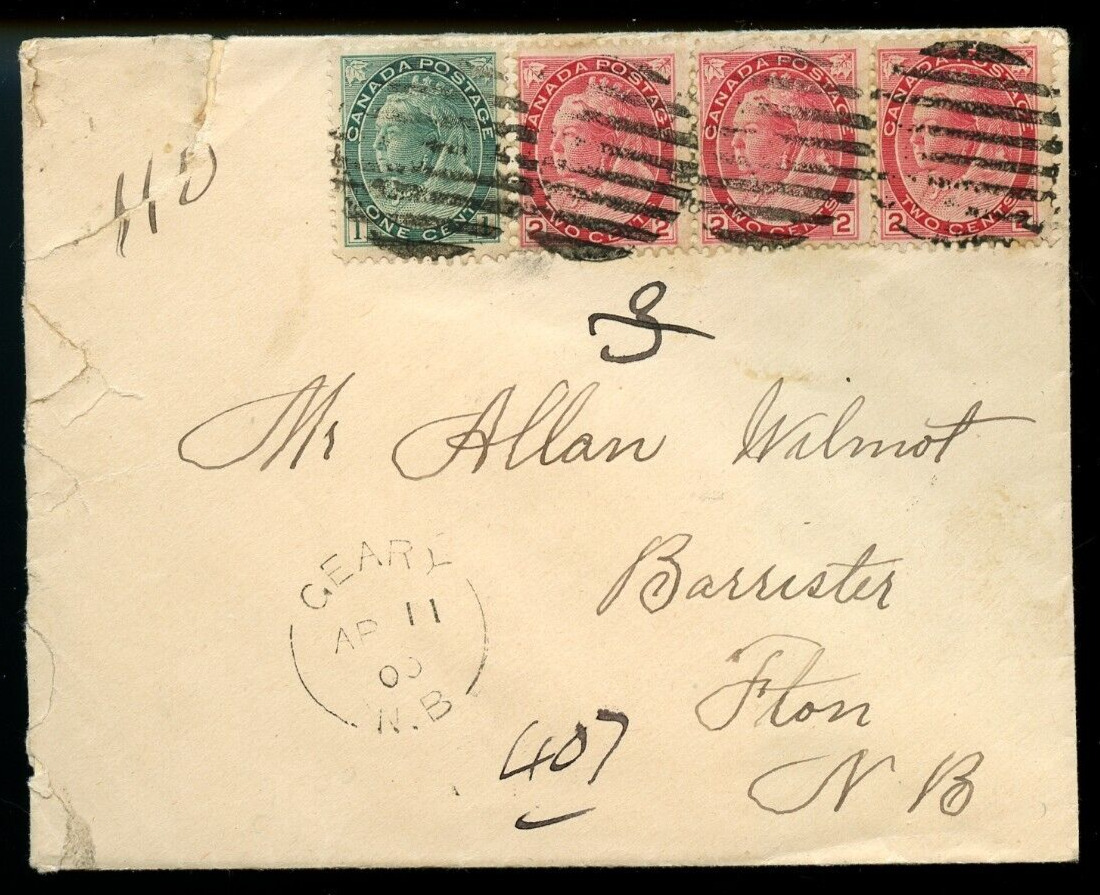 CANADA POSTAGE CANADA POSTAGE CANADA POSTAGE CANADA POSTAGE
1 ONE CENT 1 2 TWO CENTS 2 2 TWO CENTS 2 2 TWO CENTS 2
Mr Allan Wilmot
Barrister
Fton
N B
GEARY
AP 11
00
N.B
407